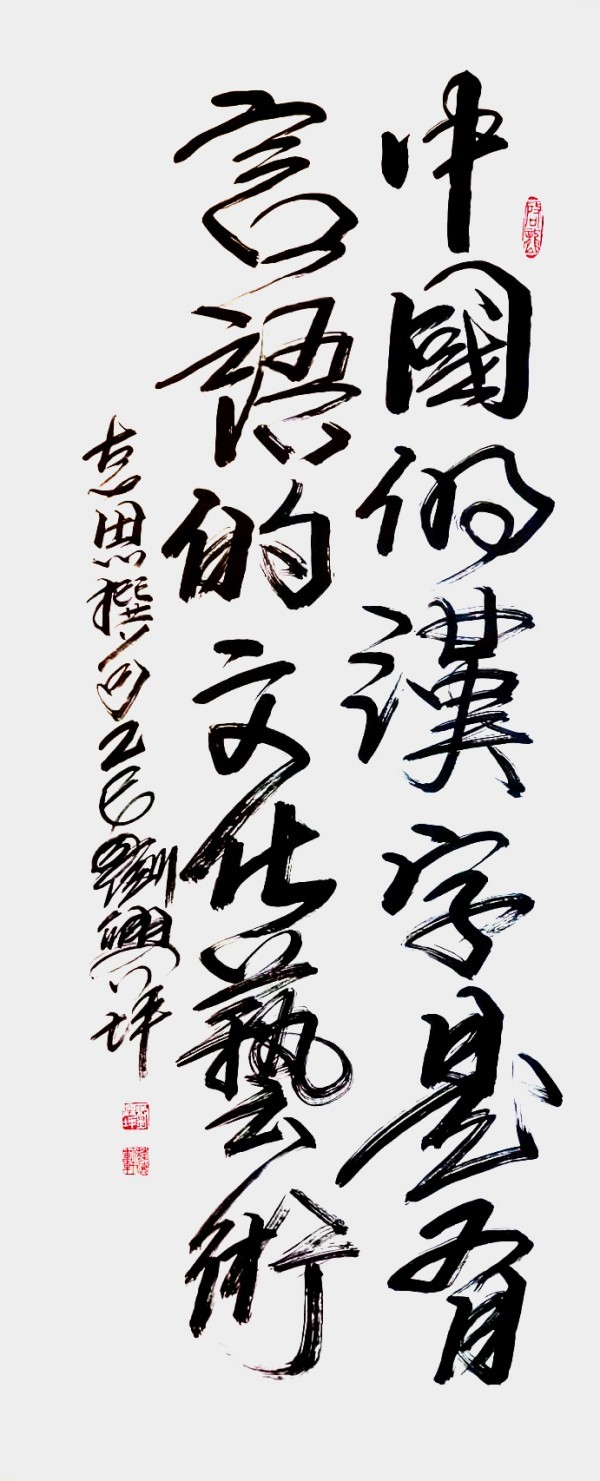 中國的漢字是有
言語的文化藝術
志思撰句乙巳劉興坪